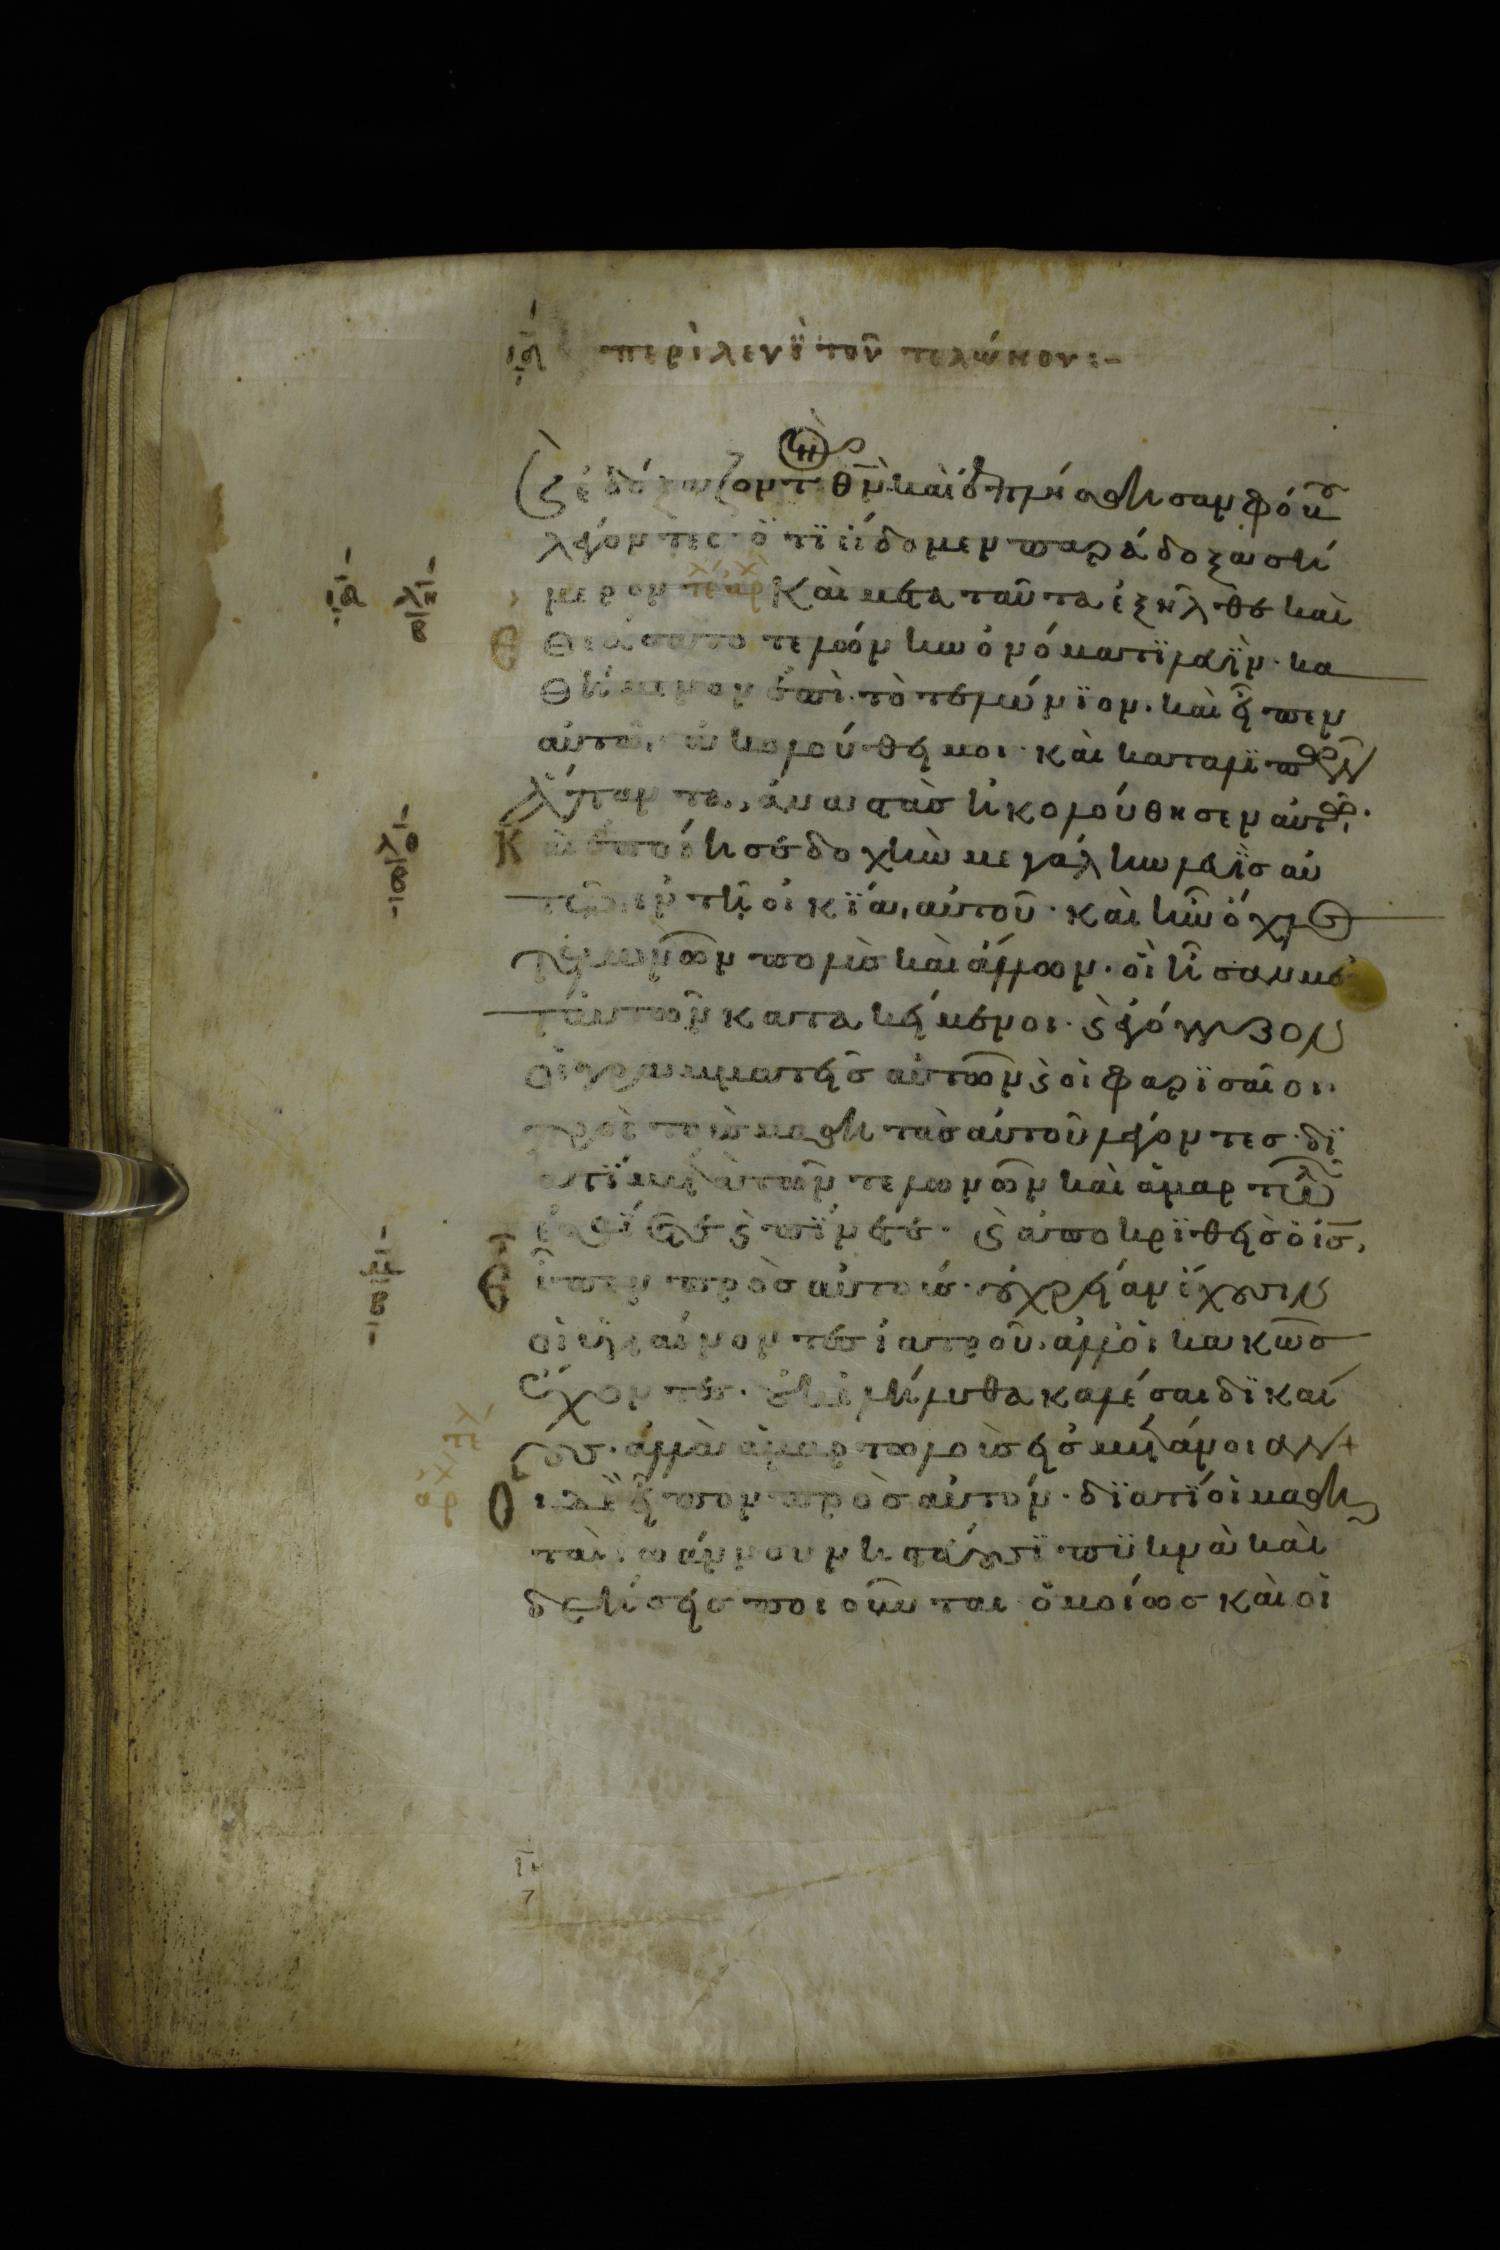 ιδ περὶ λευῒ τοῦ τελώνου:-
ϛ ἐδόξαζον τ θν καὶ ἐπλήσθησαν φόβου
λέγοντες· ὅτϊ εἴδομεν παράδοξα σή
μερον τε αρχ Καὶ μετα ταῦτα ἐξῆλθε καὶ
Θεάσατο τελώνην ὀνόματϊ λευῒν· κα
Θήμενον ἐπὶ τὸ τελώνϊον. καὶ εἶπεν
αὐτῶ, ἀκολούθει μοι· καὶ καταλϊπὼν
ἅπαντα, ἀναστὰσ ἠκολούθησεν αὐτῶ.
Καὶ ἐποίησε δοχὴν μεγάλην λευῒσ αὐ
τῶ ἐν τῆ οἰκϊα αὐτοῦ· καὶ ἦν ὄχλοσ
τελωνῶν πολὺσ καὶ ἄλλων· οἳ ἦσαν με
τ αυτῶν κατακείμενοι· ϛ ἐγόγγυζον
οἱ γραμματεῖσ αὐτῶν ϛ οἱ φαρϊσαῖοι
πρὸς τοὺσ μαθητὰσ αὐτοῦ λέγοντεσ· δϊ
ατϊ μετὰ τῶν τελωνῶν καὶ ἁμαρτωλῶν
ἐσθϊετε ϛ πϊνετε· ϛ ἀποκρϊθεὶσ ὁ ισ,
εἶπεν πρὸσ αὐτούσ· οὐ χρείαν ἔχουσιν
οἱ ὑγιαίνοντεσ ἰατροῦ. ἀλλ οἱ κακῶσ
ἔχοντεσ. οὐκ ἐλήλυθα καλέσαι δϊκαί
ουσ· ἀλλὰ ἁμαρτωλοὺσ εἰσ μετάνοιαν+
Οι δὲ εἶπον πρὸσ αὐτόν· δϊατϊ οἱ μαθη
ταὶ ϊωάννου νηστεύουσϊ πϋκνὰ καὶ
δεήσεισ ποιοῦνται ὁμοίωσ καὶ οἱ
ιδ
λη
β
λθ
β
μ
β
τελ
αρχ